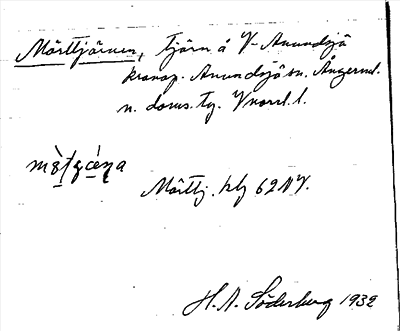 Mörttjärnen, tjärn å V. Anundsjö
kronop. Anundsjö sn. Ångerml.
n. doms. tg. Vnorrl. l.
Mörttj. kbl 62 NV.
H. A. Söderberg 1932